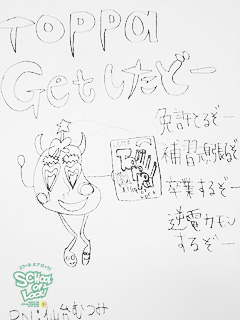 TOPPa
Getしたどー
免許とるぞー
補習頑張るぞー
卒業するぞー
逆電カモン
するぞー
SCHOOL OF LOCK!
PN:仙台むつみ